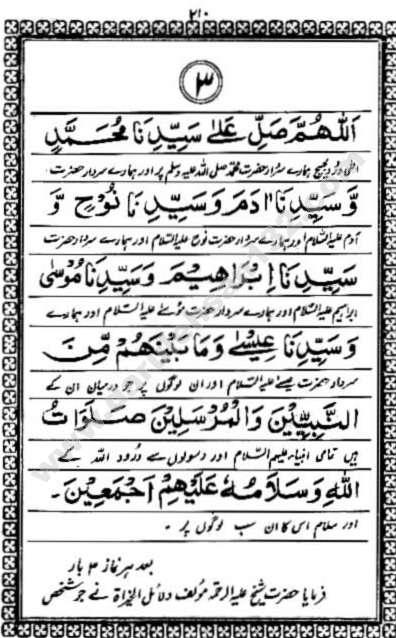 ۲۱۰
۳
اَللّٰهُمَّ صَلِّ عَلٰى سَيِّدِنَا مُحَمَّدٍ
الٰہی درود بھیج ہمارے سردار حضرت محمد صلی اللہ علیہ وسلم پر اور ہمارے سردار حضرت
وَّسَيِّدِنَا اٰدَمَ وَسَيِّدِنَا نُوْحٍ وَّ
آدم علیہ السلام اور ہمارے سردار حضرت نوح علیہ السلام اور ہمارے سردار حضرت
سَيِّدِنَا اِبْرَاهِيْمَ وَسَيِّدِنَا مُوْسٰى
ابراہیم علیہ السلام اور ہمارے سردار حضرت موسٰے علیہ السلام اور ہمارے
وَسَيِّدِنَا عِيْسٰى وَمَا بَيْنَهُمْ مِّنَ
سردار حضرت عیسٰے علیہ السلام اور ان لوگوں پر جو درمیان ان کے
النَّبِيِّيْنَ وَالْمُرْسَلِيْنَ صَلَوَاتُ
ہیں تمامی انبیاء علیہم السلام اور رسولوں سے درود اللہ کے
اللهِ وَسَلَامُهٗ عَلَيْهِمْ اَجْمَعِيْنَ۔
اور سلام اس کا ان سب لوگوں پر ۔
بعد ہر نماز ۳ بار
فرمایا حضرت شیخ علیہ الرحمہ مؤلف دلائل الخیرات نے جو شخص